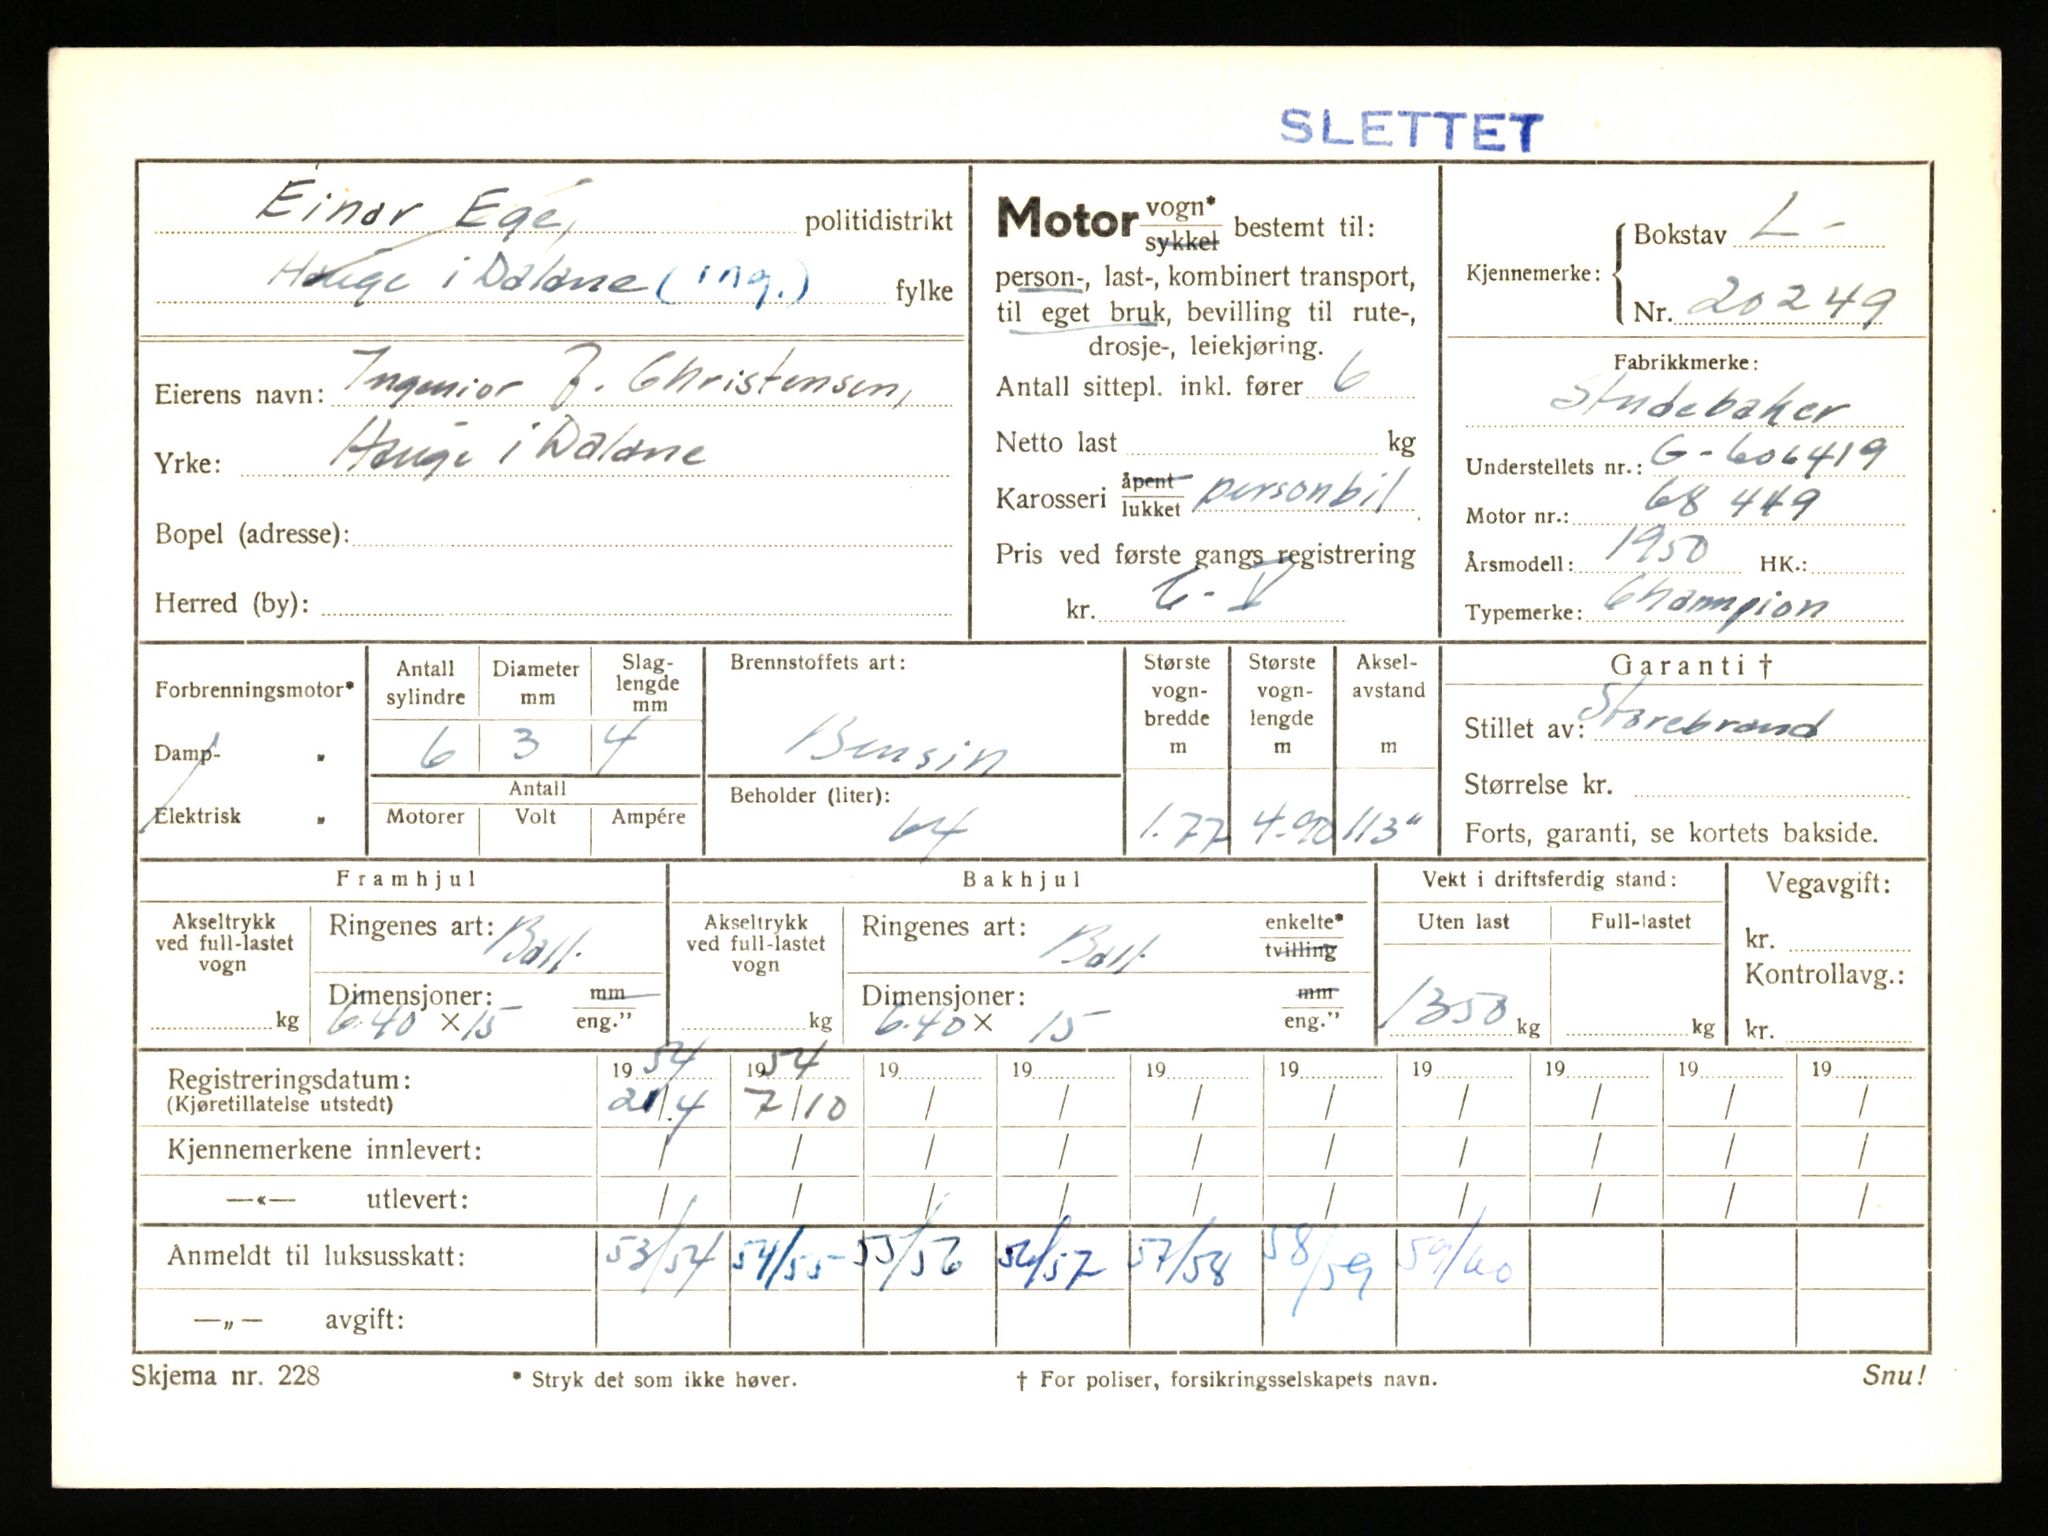 SLETTET
Einar Ege, politidistrikt
Hauge i Dalane (ing.) fylke
Eierens navn: Ingeniør J. Christensen,
Yrke: Hauge i Dalane
Bopel (adresse):
Herred (by):
Motor vogn* sykkel bestemt til:
person-, last-, kombinert transport,
til eget bruk, bevilling til rute-,
drosje-, leiekjøring.
Antall sittepl. inkl. fører 6
Netto last kg
Karosseri åpent lukket personbil
Pris ved første gangs registrering
kr.
Kjennemerke: Bokstav L-
Nr. 20249
Fabrikkmerke:
Studebaker
Understellets nr.: G-606419
Motor nr.: 68 449
Årsmodell: 1950 HK.:
Typemerke: Champion
Forbrenningsmotor*
Damp- "
Elektrisk "
Antall sylindre
Diameter mm
Slag-lengde mm
6 3 4
Antall
Motorer Volt Ampére
Brennstoffets art:
Bensin
Beholder (liter):
64
Største vogn-bredde m
1.77
Største vogn-lengde m
4.90
Aksel-avstand m
113"
Garanti †
Stillet av: Storebrand
Størrelse kr.
Forts, garanti, se kortets bakside.
Framhjul
Akseltrykk ved full-lastet vogn
kg
Ringenes art: Ball.
Dimensjoner: mm eng."
6.40 × 15
Bakhjul
Akseltrykk ved full-lastet vogn
kg
Ringenes art: Ball. enkelte* tvilling
Dimensjoner: mm eng."
6.40 × 15
Vekt i driftsferdig stand:
Uten last Full-lastet
1350 kg kg
Vegavgift:
kr.
Kontrollavg.:
kr.
Registreringsdatum: 19 54 19 54 19 19 19 19 19 19 19 19
(Kjøretillatelse utstedt) 21/4 7/10 / / / / / / / /
Kjennemerkene innlevert: / / / / / / / / / /
—«— utlevert: / / / / / / / / / /
Anmeldt til luksusskatt: 53/54 54/55 55/56 56/57 57/58 58/59 59/60
—„— avgift:
Skjema nr. 228 * Stryk det som ikke høver. † For poliser, forsikringsselskapets navn. Snu!